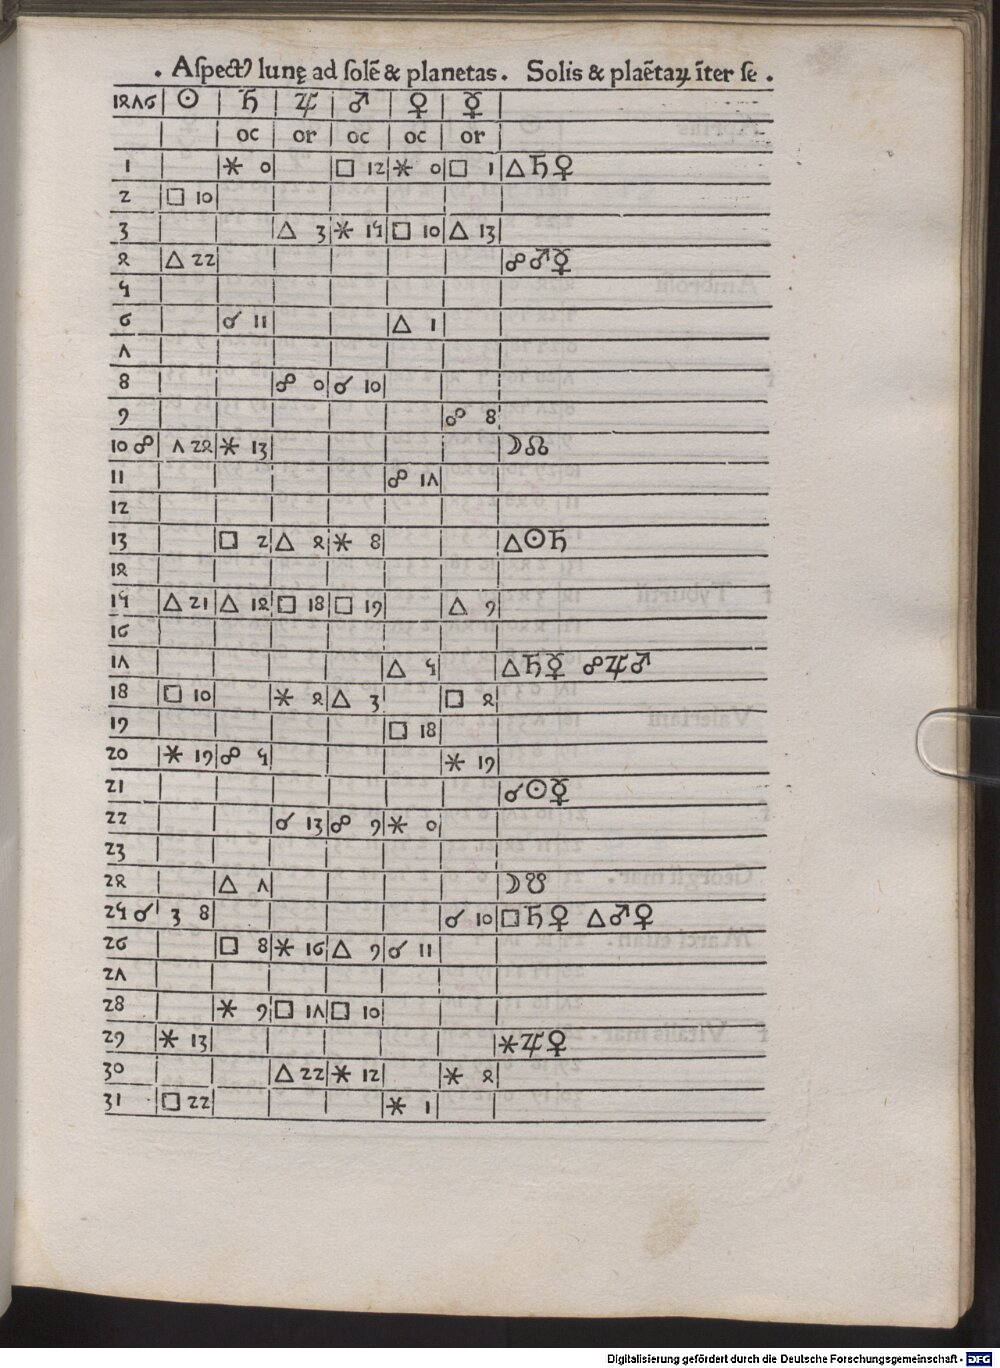 . Aſpectꝰ lunę ad ſolē & planetas . Solis & plaētaꝝ īter ſe .
1476 ☉ ♄ ♃ ♂ ♀ ☿
oc or oc oc or
1 ⚹ 0 □ 12 ⚹ 0 □ 1 △♄♀
2 □ 10
3 △ 3 ⚹ 15 □ 10 △ 13
4 △ 22 ☍♂☿
5
6 ☌ 11 △ 1
7
8 ☍ 0 ☌ 10
9 ☍ 8
10 ☍ 7 24 ⚹ 13 ☽☊
11 ☍ 17
12
13 □ 2 △ 4 ⚹ 8 △☉♄
14
15 △ 21 △ 14 □ 18 □ 19 △ 9
16
17 △ 5 △♄☿ ☍♃♂
18 □ 10 ⚹ 4 △ 3 □ 4
19 □ 18
20 ⚹ 19 ☍ 5 ⚹ 19
21 ☌☉☿
22 ☌ 13 ☍ 9 ⚹ 0
23
24 △ 7 ☽☋
25 ☌ 3 8 ☌ 10 □♄♀ △♂♀
26 □ 8 ⚹ 16 △ 9 ☌ 11
27
28 ⚹ 9 □ 17 □ 10
29 ⚹ 13 ⚹♃♀
30 △ 22 ⚹ 12 ⚹ 4
31 □ 22 ⚹ 1
Digitalisierung gefördert durch die Deutsche Forschungsgemeinschaft - DFG